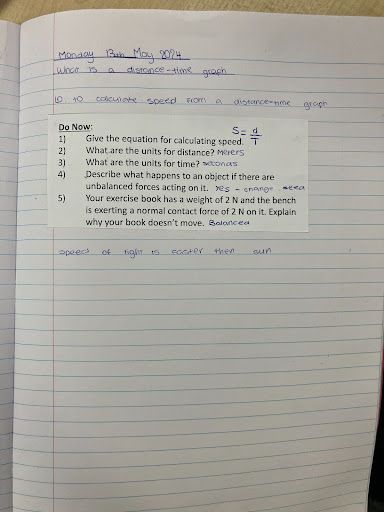 Monday 13th May 2024
What is a distance-time graph
LO: to calculate speed from a distance-time graph
Do Now:
1) Give the equation for calculating speed. S = d/T
2) What are the units for distance? Meters
3) What are the units for time? seconds
4) Describe what happens to an object if there are
unbalanced forces acting on it. Yes - change speed
5) Your exercise book has a weight of 2 N and the bench
is exerting a normal contact force of 2 N on it. Explain
why your book doesn't move. Balanced
speed of light is faster then sun